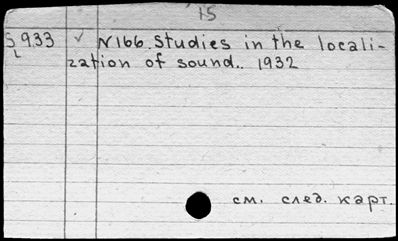 15
S 933 ✓ N166. Studies in the locali-
L zation of sound.. 1932
см. след. карт.